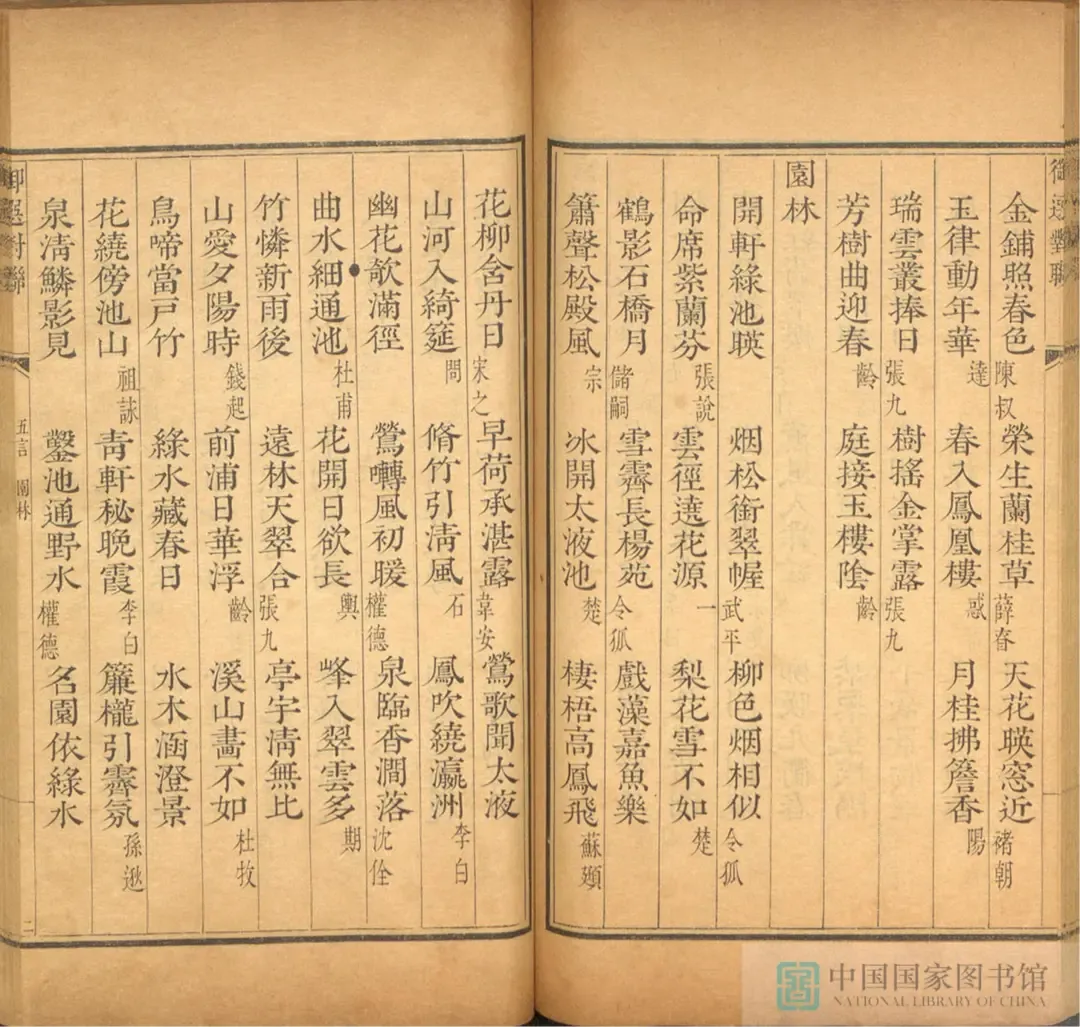 金鋪照春色 陳叔 榮生蘭桂草 薛春 天花暎窓近 褚朝
玉律動年華 達 春入鳳凰樓 惑 月桂拂簷香 陽
瑞雲叢捧日 張九 樹搖金掌露 張九
芳樹曲迎春 齡 庭接玉樓陰 齡
園林
開軒綠池暎 烟松銜翠幄 武平 柳色烟相似 令狐
命席紫蘭芬 張說 雲徑遶花源 一 梨花雪不如 楚
鶴影石橋月 儲嗣 雪霽長楊苑 令狐 戲藻嘉魚樂
簫聲松殿風 宗 冰開太液池 楚 棲梧高鳳飛 蘇頲
花柳含丹日 宋之 早荷承湛露 韋安 鶯歌聞太液
山河入綺筵 問 脩竹引淸風 石 鳳吹繞瀛洲 李白
幽花欹滿徑 鶯囀風初暖 權德 泉臨香澗落 沈佺
曲水細通池 杜甫 花開日欲長 輿 峰入翠雲多 期
竹憐新雨後 遠林天翠合 張九 亭宇淸無比
山愛夕陽時 錢起 前浦日華浮 齡 溪山畵不如 杜牧
鳥啼當戸竹 綠水藏春日 水木涵澄景
花繞傍池山 祖詠 靑軒秘晚霞 李白 簾櫳引霽氛 孫逖
泉淸鱗影見 鑿池通野水 權德 名園依綠水
五言 園林
二
中国国家图书馆
NATIONAL LIBRARY OF CHINA